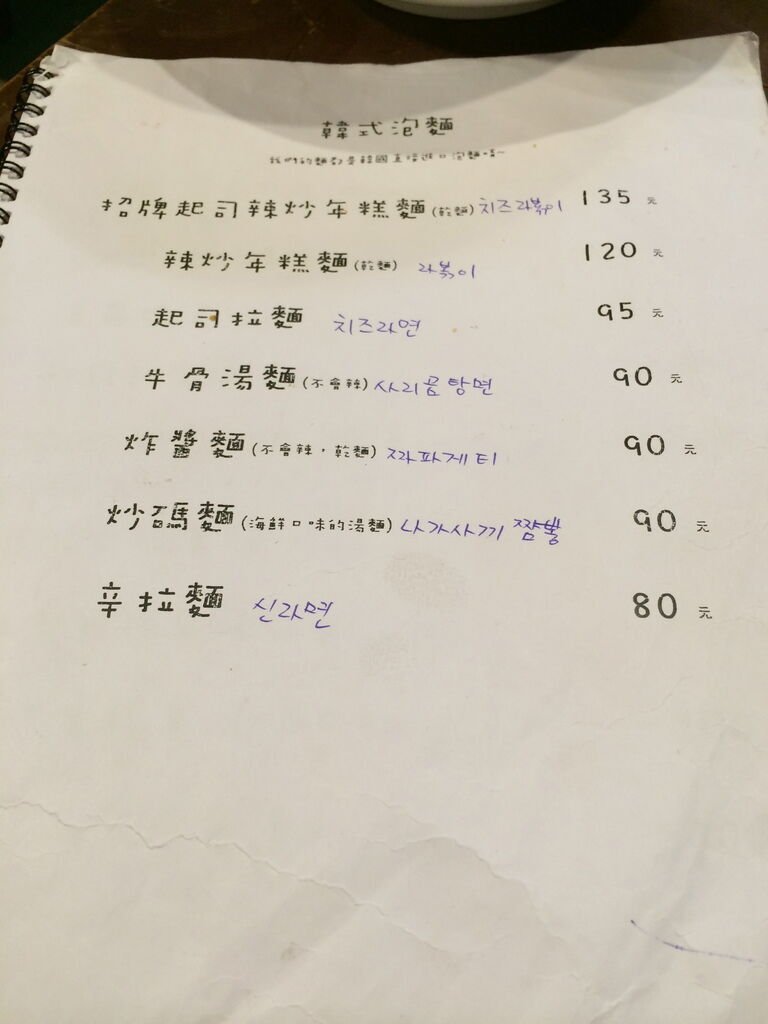 韓式泡麵
我們的麵都是韓國直接進口泡麵唷~
招牌起司辣炒年糕麵(乾麵) 치즈라볶이 135 元
辣炒年糕麵(乾麵) 라볶이 120 元
起司拉麵 치즈라면 95 元
牛骨湯麵(不會辣) 사리곰탕면 90 元
炸醬麵(不會辣,乾麵) 짜파게티 90 元
炒碼麵(海鮮口味的湯麵) 나가사끼 짬뽕 90 元
辛拉麵 신라면 80 元